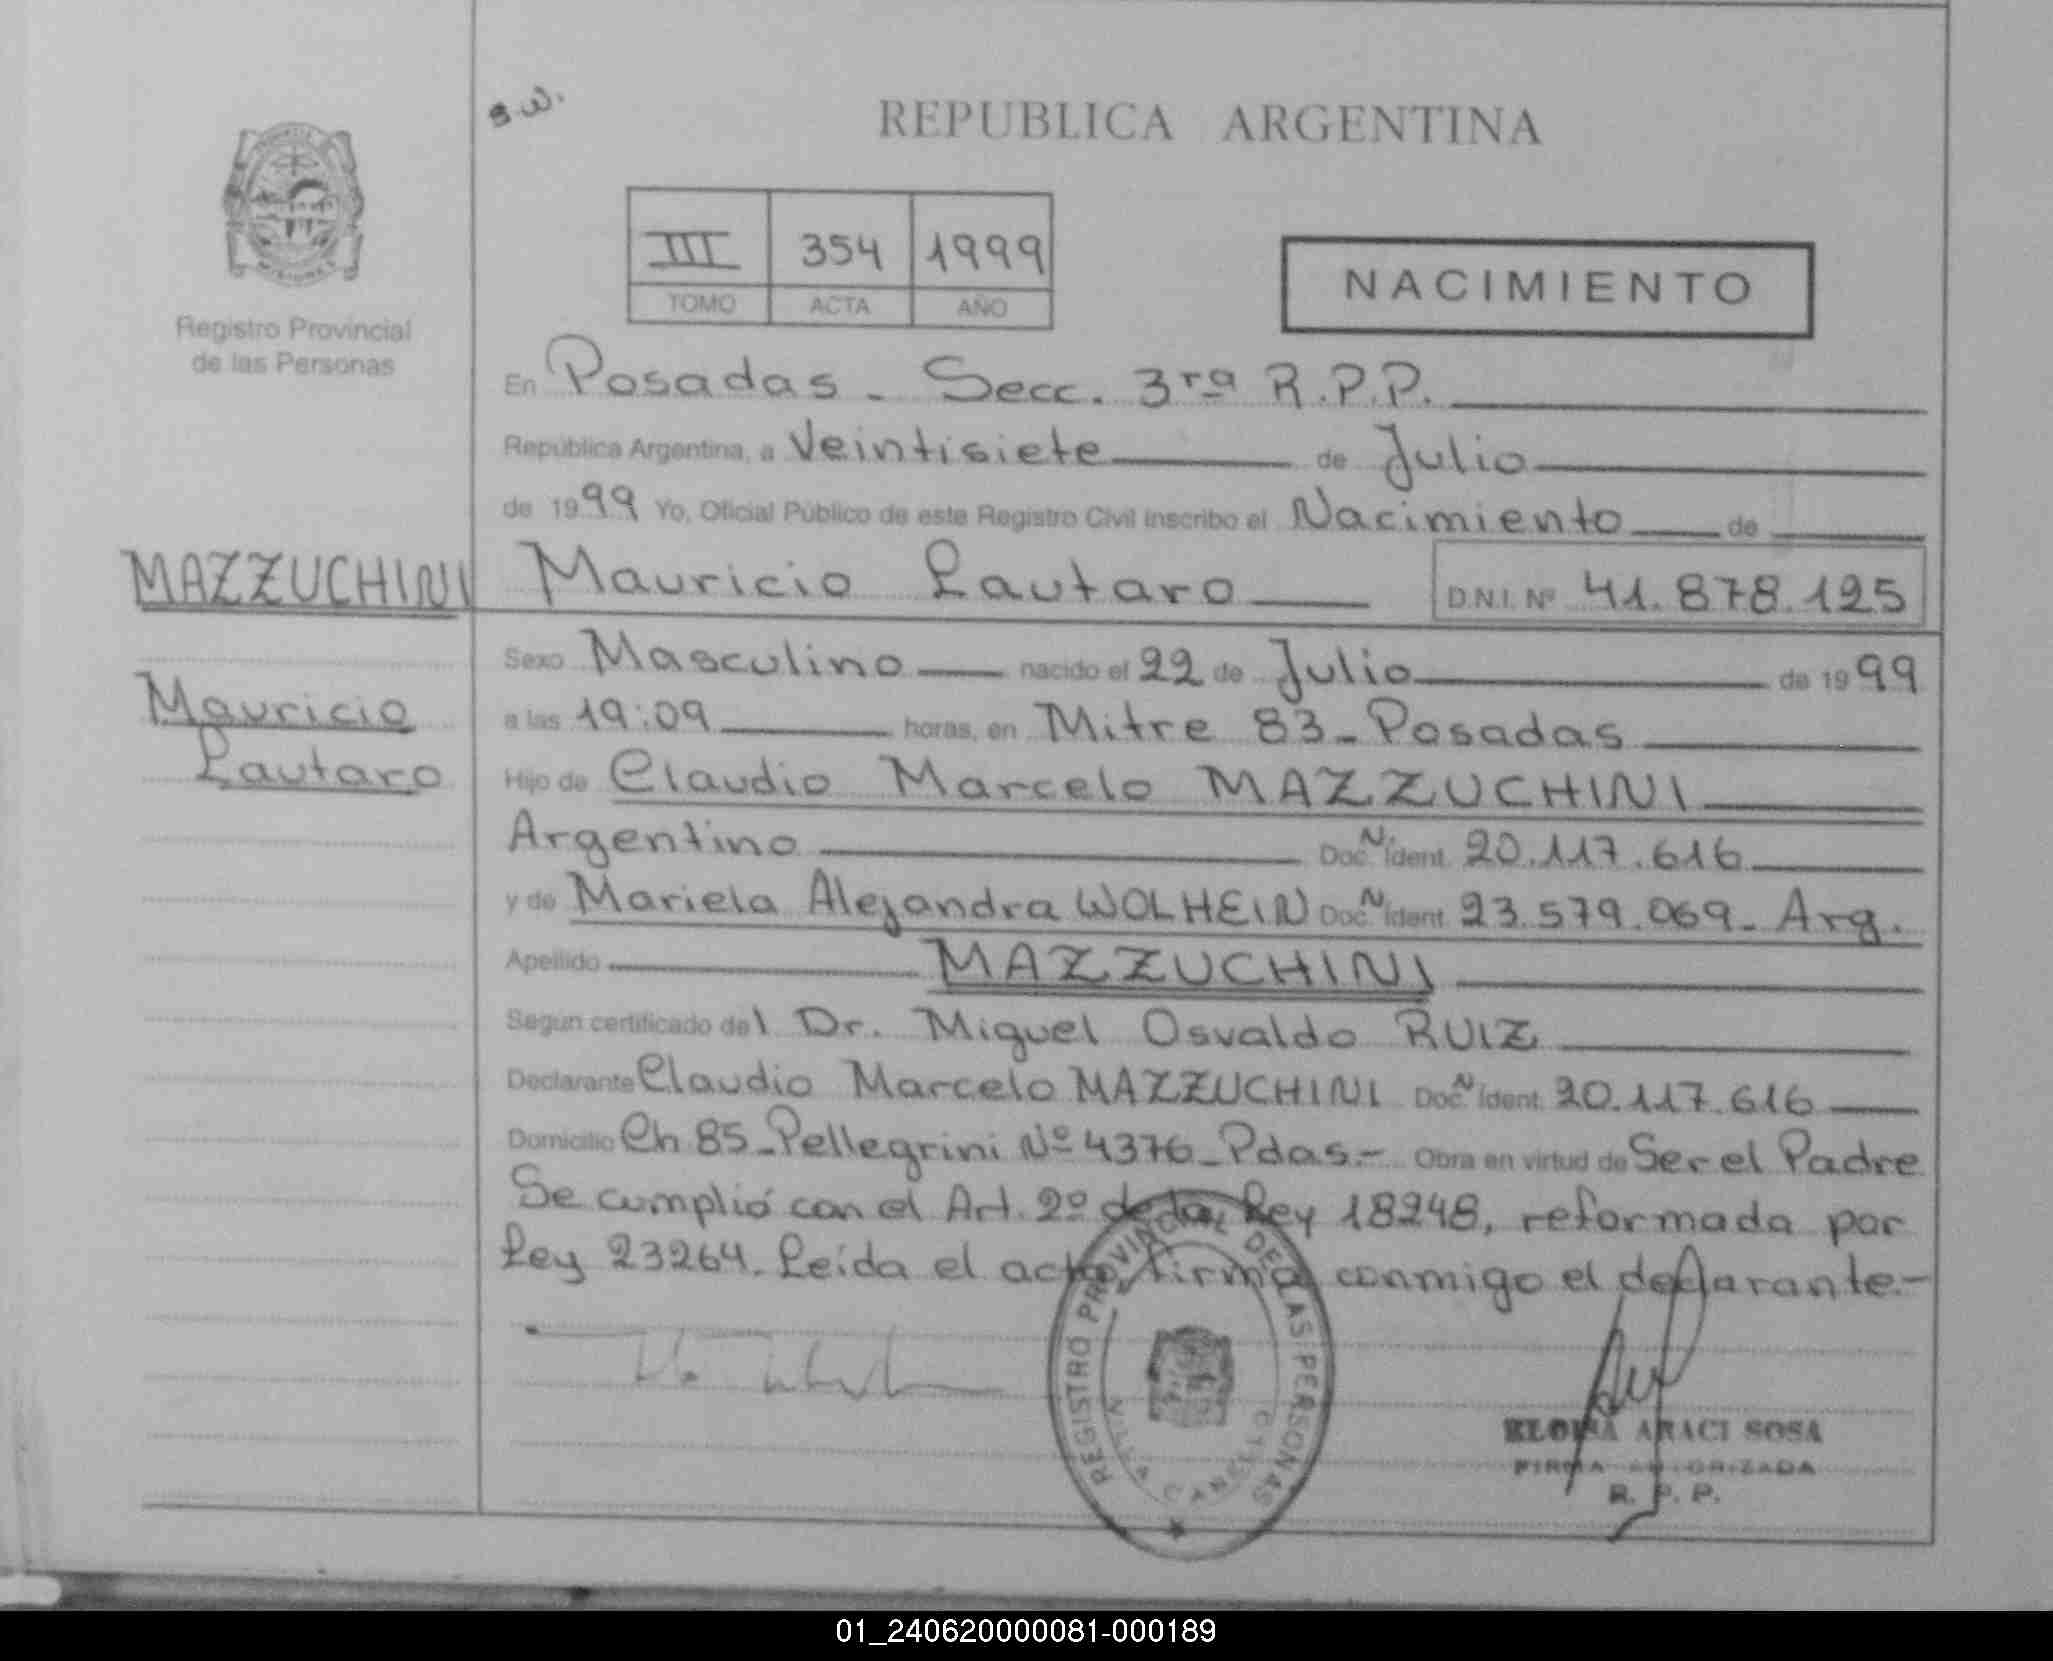 s.w.
REPUBLICA ARGENTINA
III 354 1999
TOMO ACTA AÑO
NACIMIENTO
MISIONES
Registro Provincial
de las Personas
En Posadas - Secc. 3ra R.P.P.
República Argentina, a Veintisiete de Julio
de 1999 Yo, Oficial Público de este Registro Civil inscribo el Nacimiento de
MAZZUCHINI Mauricio Lautaro D.N.I. Nº 41.878.125
Sexo Masculino nacido el 22 de Julio de 1999
Mauricio
Lautaro
a las 19:09 horas, en Mitre 83 - Posadas
Hijo de Claudio Marcelo MAZZUCHINI
Argentino Doc. N Ident. 20.117.616
y de Mariela Alejandra WOLHEIN Doc. N Ident. 23.579.069 - Arg.
Apellido MAZZUCHINI
Según certificado del Dr. Miguel Osvaldo RUIZ
Declarante Claudio Marcelo MAZZUCHINI Doc. N Ident. 20.117.616
Domicilio Ch 85 - Pellegrini Nº 4376 - Pdas.- Obra en virtud de Ser el Padre
Se cumplió con el Art. 2º de la Ley 18248, reformada por
Ley 23264. Leída el acta, firma conmigo el declarante.-
REGISTRO PROVINCIAL DE LAS PERSONAS
ELOISA ARACI SOSA
FIRMA AUTORIZADA
R. P. P.
01_240620000081-000189